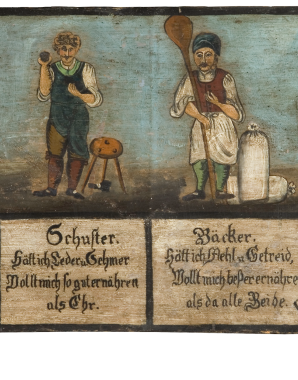 Schuster.
Hätt ich Leder u Schmer
Wollt mich so gut ernähren
als Ehr.
Bäcker.
Hätt ich Mehl u Getreid,
Wollt mich beßer ernähre
als da alle Beide.